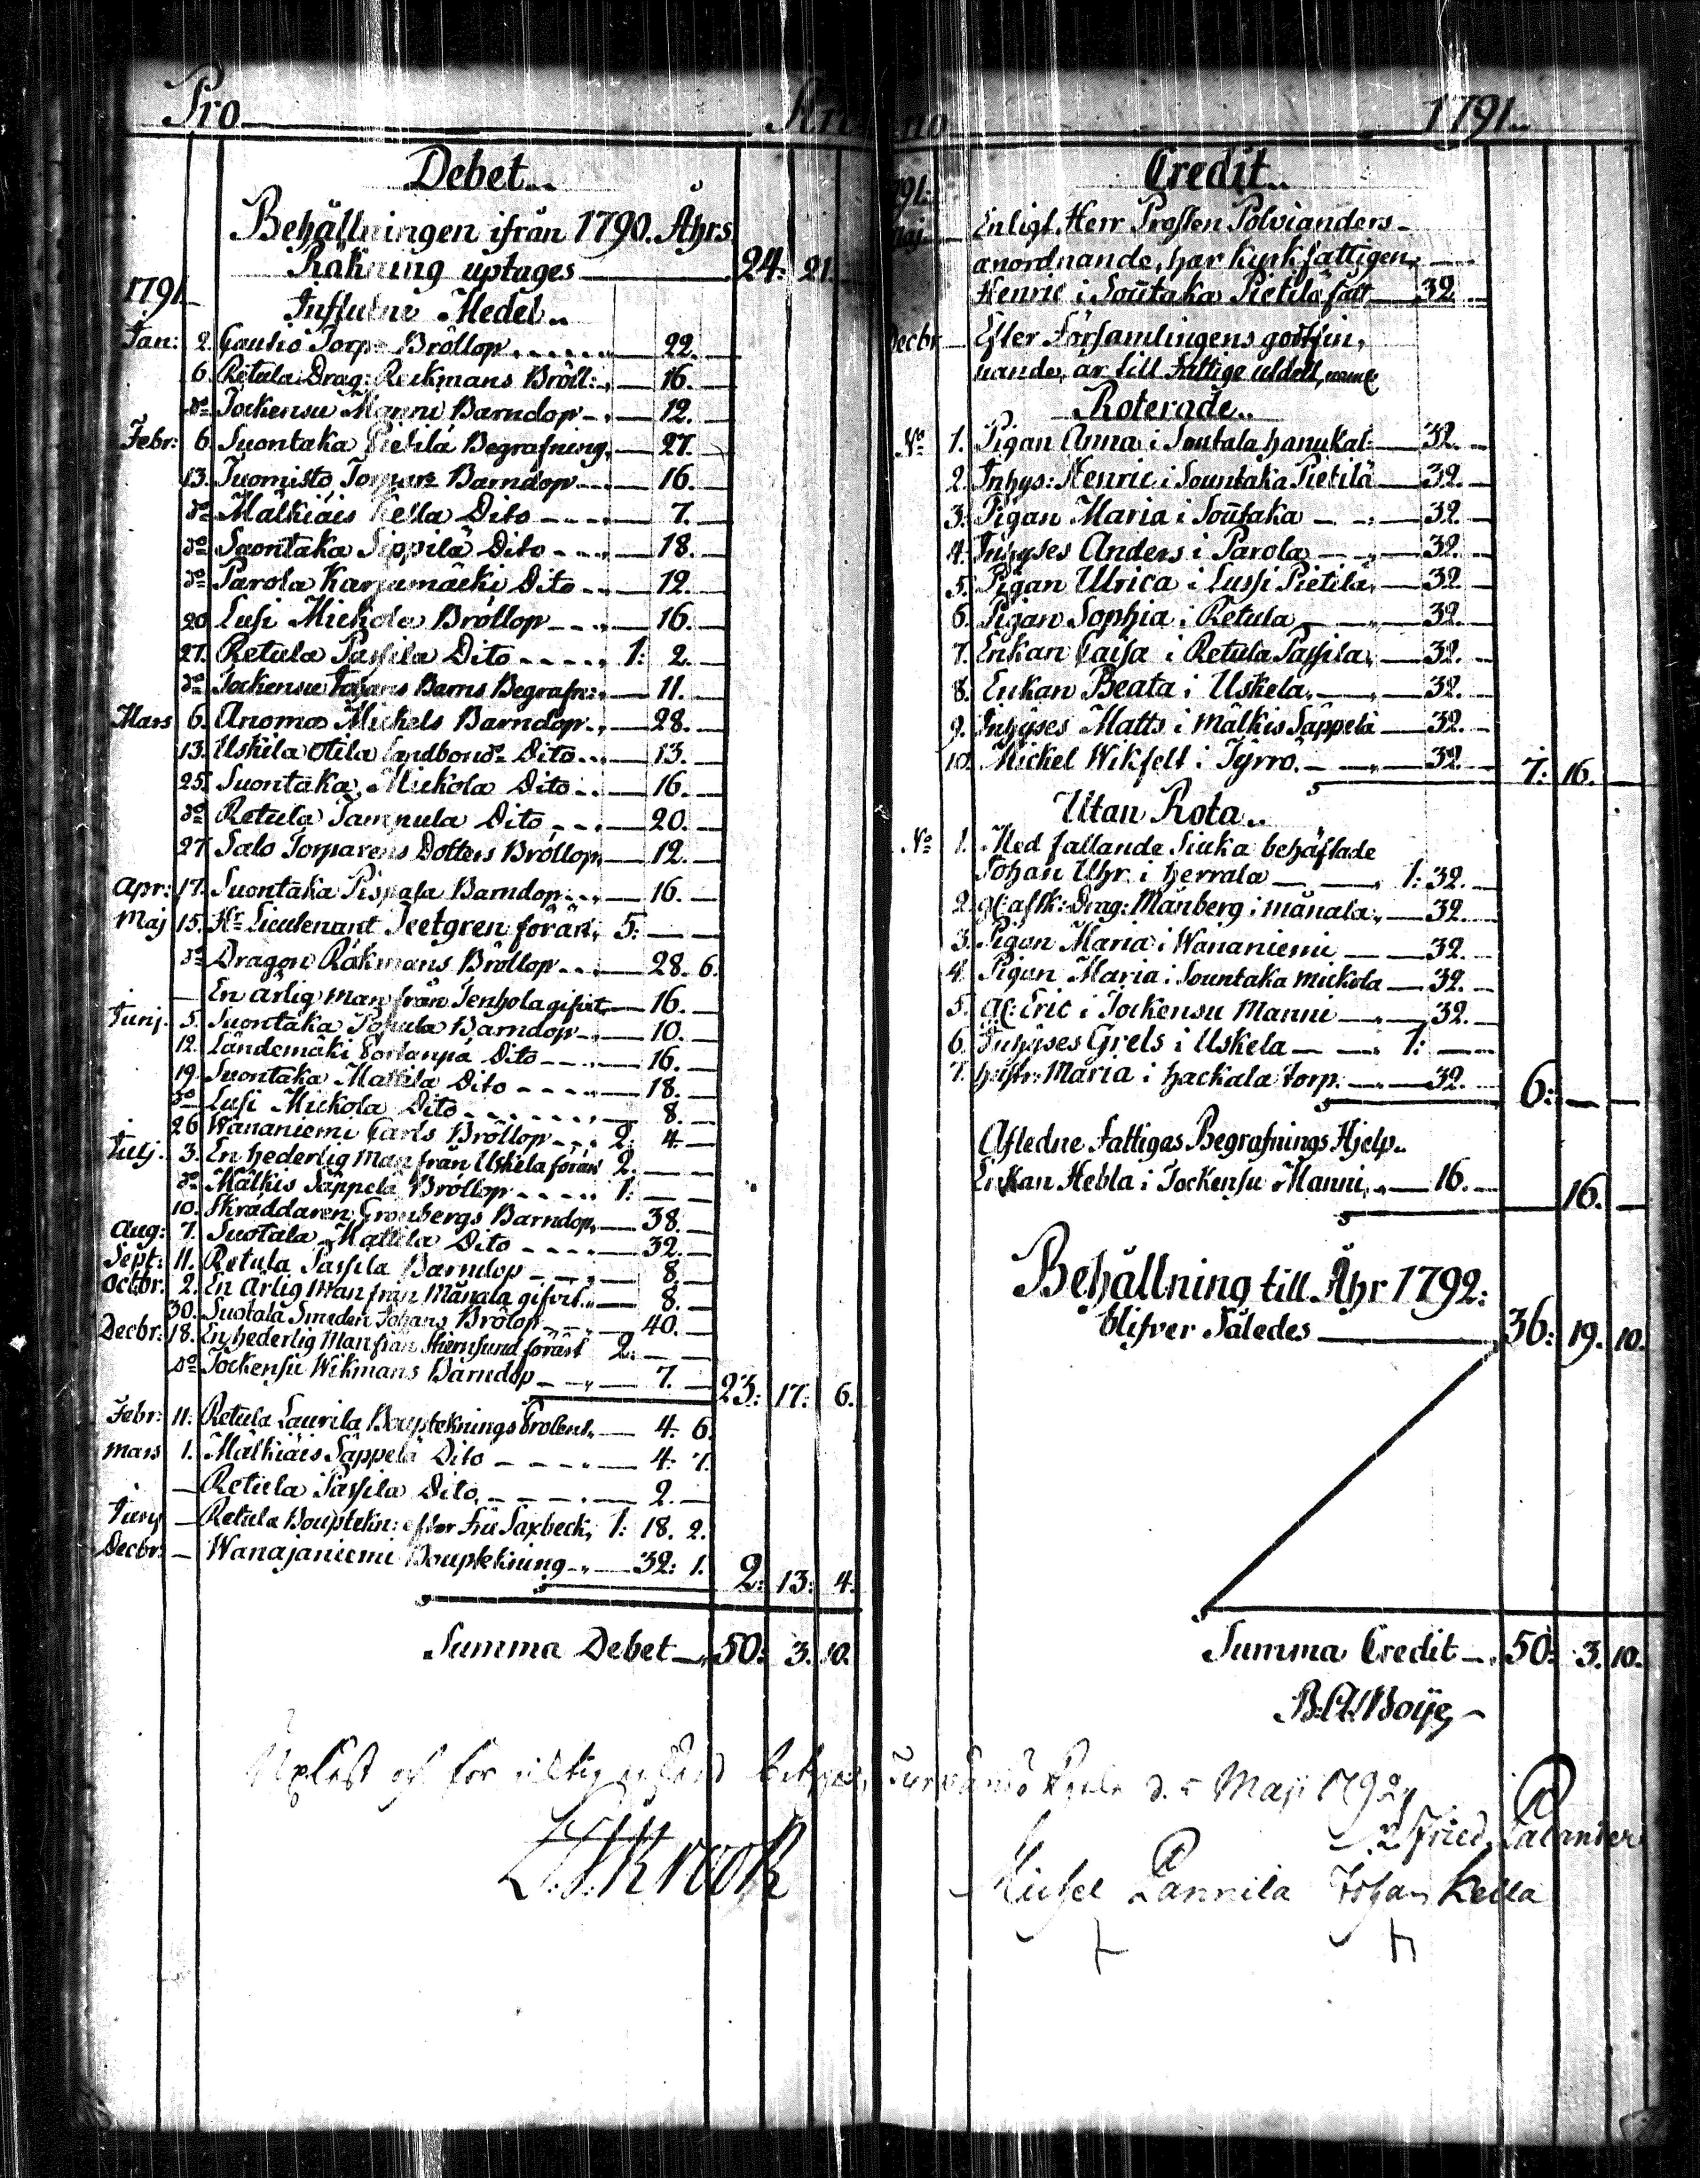 Pro Anno 1791..
Debet..
Behållningen ifrån 1790. Åhrs
Räkning uptages 24: 21.
1791
Influtne Medel..
Jan: 2. Gautio Torp Bröllop 22.
6. Retula Drag: Reckmans Bröll: 16.
do Jockensu Manni Barndop 12.
Febr: 6. Suontaka Pietilä Begrafning 27.
13. Tuomisto Torpars Barndop 16.
do Mälkiäis Kella Dito 7.
do Suontaka Sippilä Dito 18.
do Parola Karjumäcki Dito 12.
20 Lusi Mickola Bröllop 16.
27. Retula Passila Dito 1: 2.
do Jockensu Barns Begrafn: 11.
Mars 6. Anoma Mickels Barndop 28.
13. Uskila Otila landbond: Dito 13.
25. Suontaka Mickola Dito 16.
do Retula Tampula Dito 20.
27 Salo Torparens Dotters Bröllop 12.
Apr: 17. Suontaka Pispala Barndop 16.
Maj 15. Hr Lieutenant Teetgren förärt 5:
do Dragon Räkmans Bröllop 28. 6.
En ärlig man från Tenhola gifvit 16.
Junj. 5. Suontaka Pohula Barndop 10.
12. Ländemäki Dito 16.
19. Suontaka Mattila Dito 18.
do Lusi Mickola Dito 8.
26 Wänaniemi Carls Bröllop 2: 4.
Julj. 3. En hederlig Man från Uskela förärt 2.
do Mälkis Säppelä Bröllop 1:
10. Skräddaren Grönbergs Barndop 38.
Aug: 7. Suotala Mattila Dito 32.
Sept: 11. Retula Passila Barndop 8.
Octbr: 2. En ärlig man från Mänala gifvit 8.
30. Suotala Smeden Johans Brölop 40.
Decbr: 18. En hederlig Man från Hiernsund förärt 2:
do Jockensu Wikmans Barndop 7. 23: 17: 6.
Febr: 11: Retula Laurila Boupteknings Procent 4. 6.
Mars 1. Mälkiäis Säppelä Dito 4: 7.
Retula Passila Dito 2.
Junj Retula Bouptekn: efter Fru Taxbeck, 1: 18. 2.
Decbr: Wanajaniemi Bouptekning 32: 1. 2: 13: 4.
Summa Debet 50: 3. 10.
Credit..
1791:
Maj Enligt Herr Prosten Polvianders
anordnande, har kyrkfattigen
Henric i Soutaka Pietilä fått 32
Decbr Efter Församlingens godtfin,
nande, är till Fattige utdelt, neml:
Roterade..
No 1. Pigan Anna i Soutala hanukal 32.
2. Inhys: Henric i Sountaka Pietilä 32.
3. Pigan Maria i Soutaka 32.
4. Inhyses Anders i Parola 32.
5. Pigan Ulrica i Lussi Pietilä 32
6. Pigan Sophia i Retula 32.
7. Enkan Caisa i Retula Passila 32.
8. Enkan Beata i Uskela 32.
9. Inhyses Matts i Mälkis Säppelä 32.
10. Mickel Wikfelt i Tyrrö. 32. 7: 16.
Utan Rota..
No 1. Med fallande Siuka behäftade
Johan Uhr i herrala 1: 32.
2. afsk: Drag: Mänberg i mänala 32.
3. Pigan Maria i Wananiemi 32.
4. Pigan Maria i Sountaka Mickola 32.
5. Gl: Eric i Jockensu Manni 32.
6. Inhyses Grels i Uskela 1:
7. hustr: Maria i hackala torp. 32. 6:
Afledne Fattigas Begrafnings Hjelp..
Enkan Hebla i Jockensu Manni 16. 16.
Behållning till Åhr 1792:
blifver Således 36: 19. 10.
Summa Credit 50: 3. 10.
B:A:Boije
Maji 1792
Krook
Palander
Michel Pannila Johan Kella